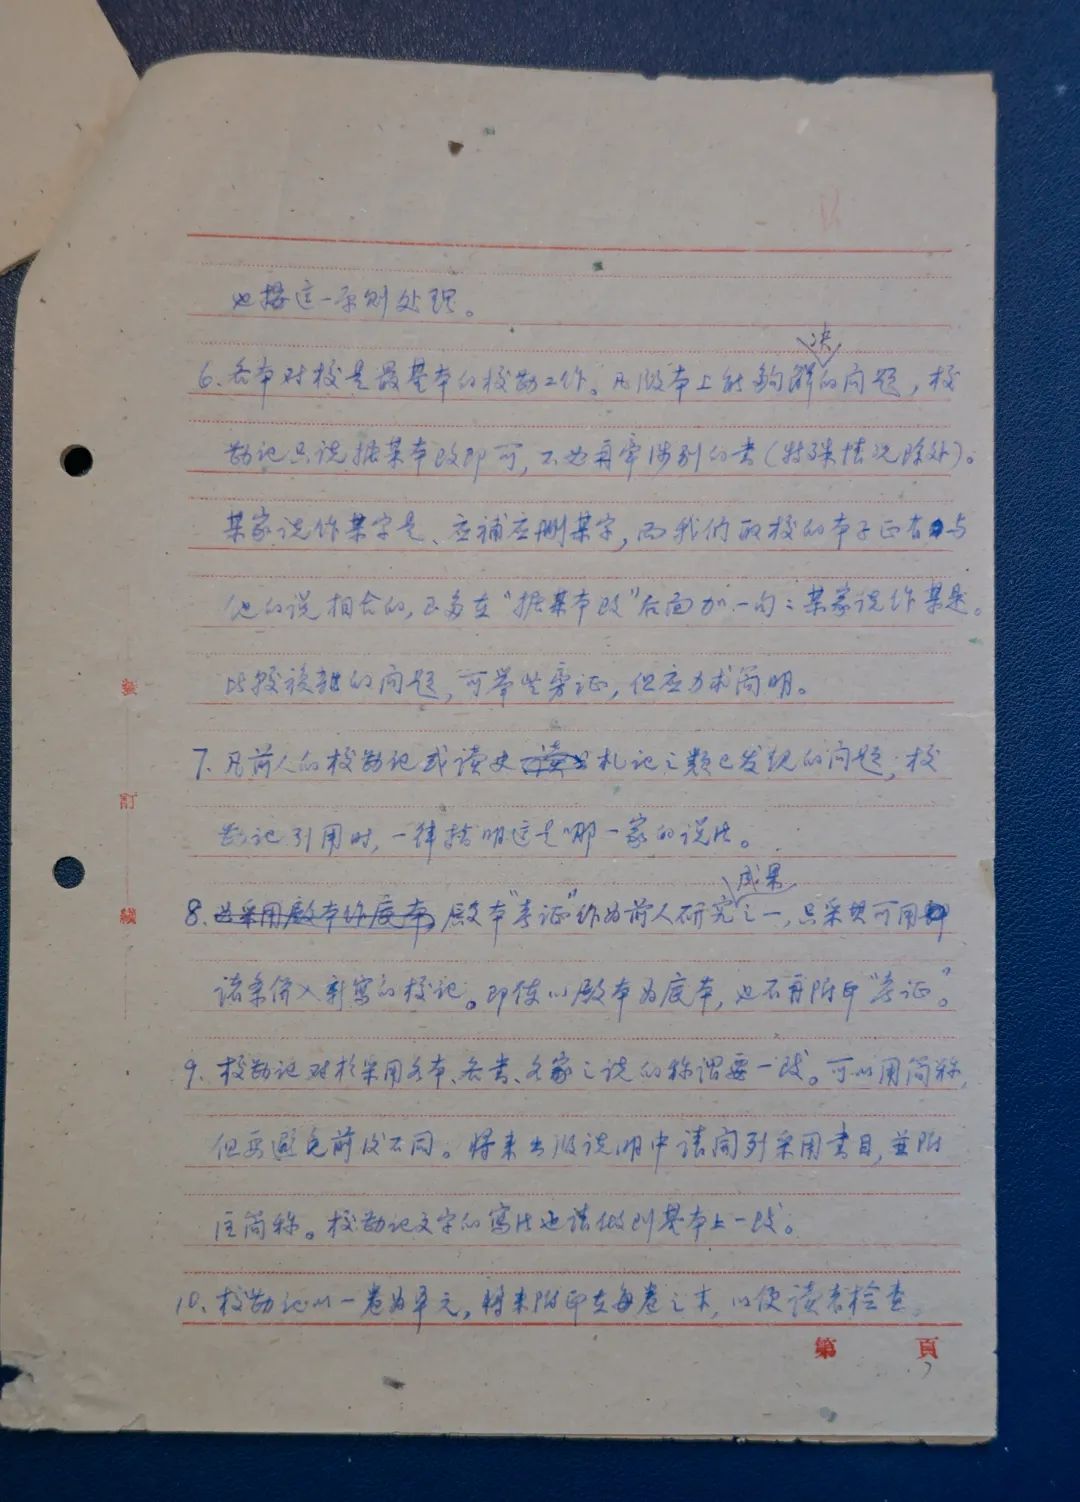 也据这一原则处理。
6、各本对校是最基本的校勘工作。凡版本上能够解决的问题，校
勘记只说据某本改即可，不必再牵涉别的书（特殊情况除外）。
某家说作某字是、应补应删某字，而我们取校的本子正有与
他的说相合的，可在“据某本改”后面加一句：某家说作某是。
比较複雜的问题，可举些旁证，但应力求简明。
7、凡前人的校勘记或读史札记之类已发现的问题，校
勘记引用时，一律指明这是哪一家的说法。
8、也采用殿本作底本，殿本“考证”作为前人研究成果之一，只采其可用
诸条併入新写的校记。即使以殿本为底本，也不再附印“考证”。
9、校勘记对於采用各本、各书、各家之说的称谓要一致。可以用简称，
但要避免前后不同。将来出版说明中请开列采用书目，並附
注简称。校勘记文字的写法也请做到基本上一致。
10、校勘记以一卷为单元，将来附印在每卷之末，以便读者检查。
装
訂
綫
第 頁